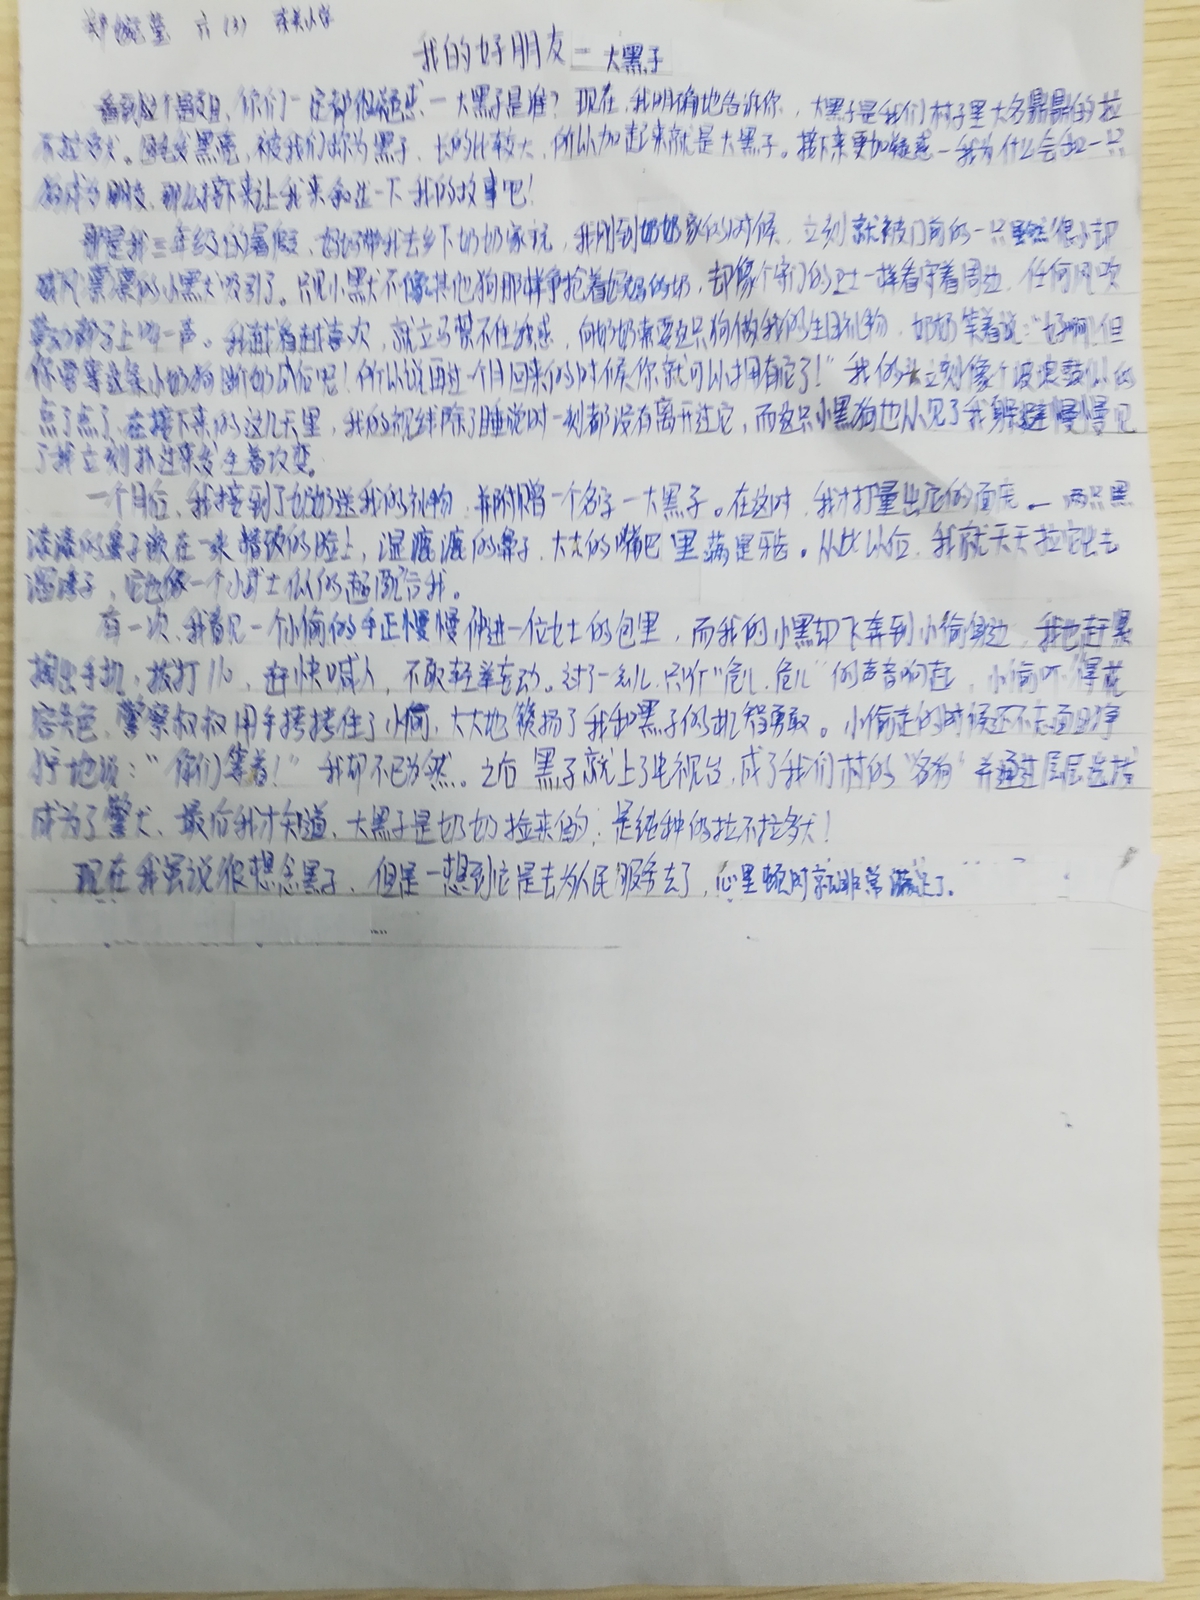 六（3）
我的好朋友——大黑子
看到这个题目，你们一定都很疑惑——大黑子是谁？现在，我明确地告诉你，大黑子是我们村子里大名鼎鼎的拉
不拉多犬。毛发黑亮，被我们称为黑子，长的比较大，所以加起来就是大黑子。接下来更加疑惑——我为什么会和一只
狗成为朋友，那么接下来让我来和说一下我的故事吧！
那是我三年级的暑假，妈妈带我去乡下奶奶家玩，我刚到奶奶家的时候，立刻就被门前的一只虽然很小却
威风凛凛的小黑犬吸引了。只见小黑犬不像其他狗那样争抢着妈妈的奶，却像个守门的卫士一样看守着周边，任何风吹
草动都会上叫一声。我越看越喜欢，就立马禁不住诱惑，向奶奶索要这只狗做我的生日礼物，奶奶笑着说：“好啊！但
你要等这条小奶狗断奶以后吧！所以说再过一个月回来的时候你就可以拥有它了！”我的头立刻像个波浪鼓似的
点了点了，在接下来的这几天里，我的视线除了睡觉时一刻都没有离开过它，而这只小黑狗也从见了我躲避慢慢见
了我立刻扑过来发生着改变。
一个月后，我接到了奶奶送我的礼物，并附赠一个名字——大黑子。在这时，我才打量出它的面庞——两只黑
漆漆的鼻子嵌在一张精硕的脸上，湿漉漉的鼻子，大大的嘴巴里满是牙齿。从此以后，我就天天拉它出去
遛遛子，它也像一个小武士似的走配合我。
有一次，我看见一个小偷的手正慢慢伸进一位女士的包里，而我的小黑却飞奔到小偷身边，我也赶紧
掏出手机，拨打110，赶快喊人，不敢轻举妄动。过了一会儿，只听“危儿，危儿”的声音响起，小偷吓得花
容失色，警察叔叔用手拷拷住了小偷，大大地赞扬了我和黑子的机智勇敢。小偷走的时候还不忘面目狰
狞地说：“你们等着！”我却不已为然。之后黑子就上了电视台，成了我们村的“名狗”并通过层层选拔
成为了警犬，最后我才知道，大黑子是奶奶捡来的，是纯种的拉不拉多犬！
现在我虽说很想念黑子，但是一想到它是去为人民服务去了，心里顿时就非常满足了。